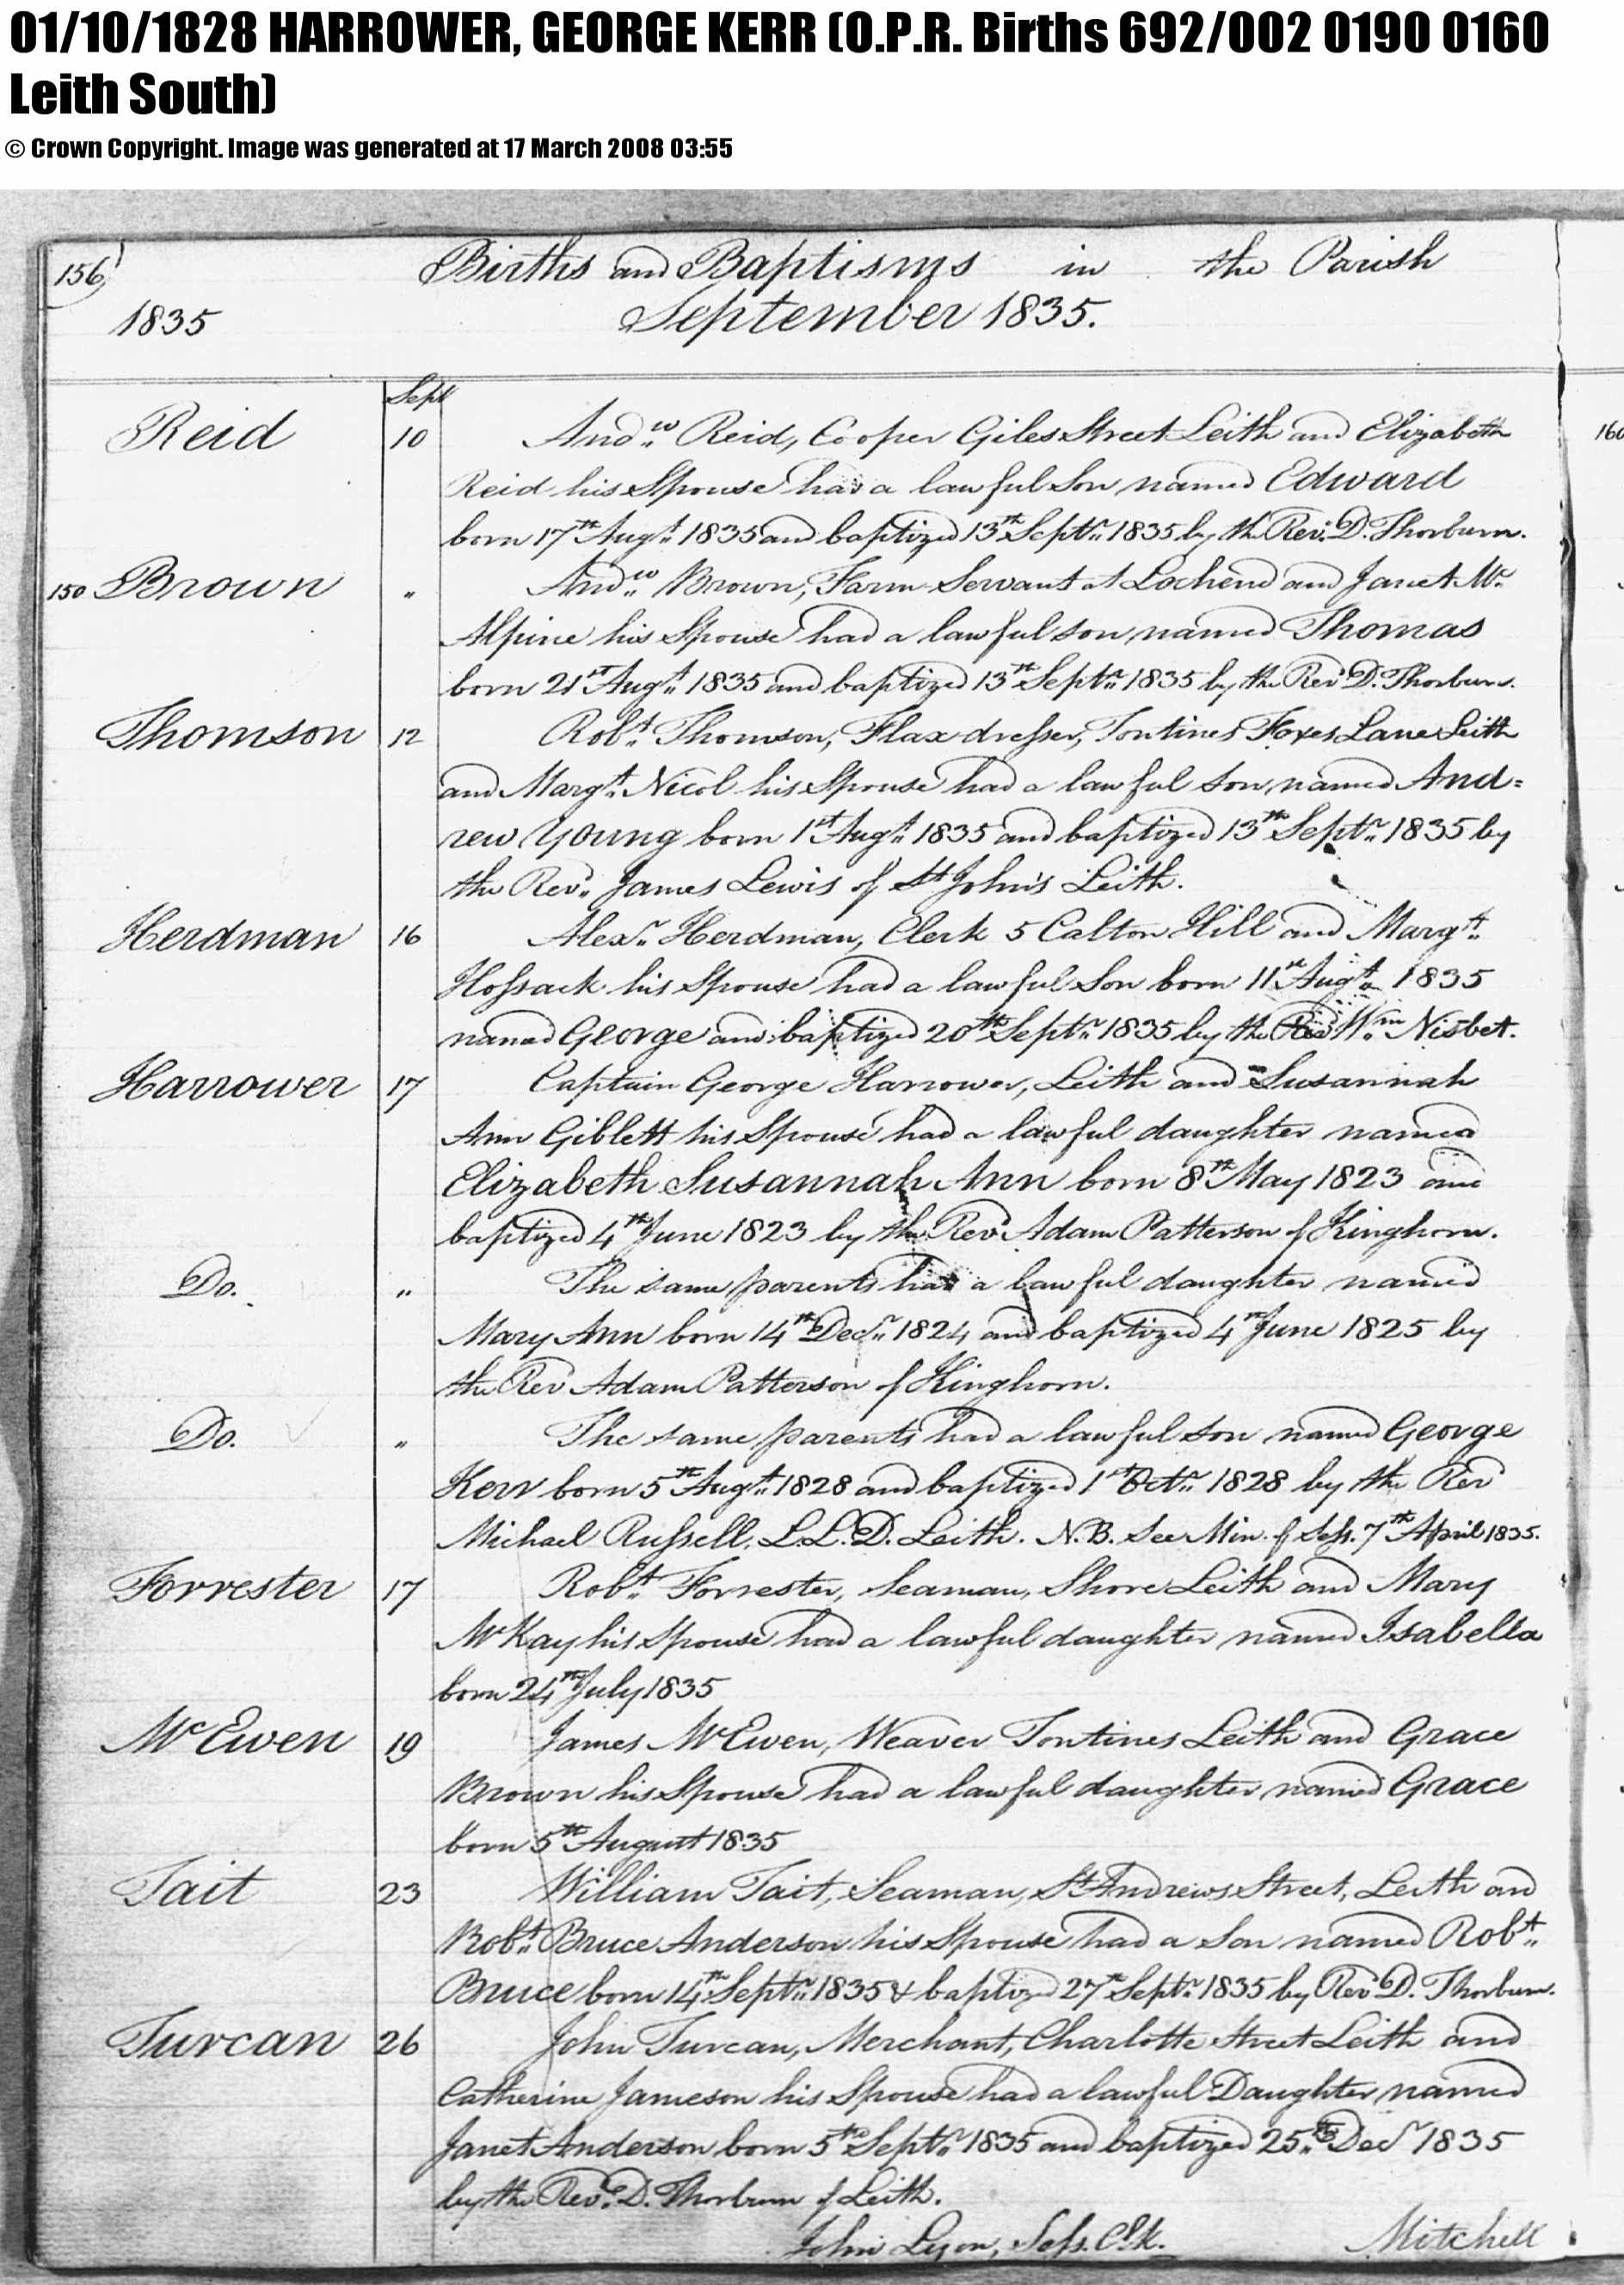 01/10/1828 HARROWER, GEORGE KERR (O.P.R. Births 692/002 0190 0160
Leith South)
© Crown Copyright. Image was generated at 17 March 2008 03:55
156
Births and Baptisms in the Parish
1835 September 1835.
Sept
Reid 10 Andw. Reid, Cooper Giles Street Leith and Elizabeth
160
Reid his Spouse had a lawful Son named Edward
born 17th Augt. 1835 and baptized 13th Septr. 1835 by the Rev. D. Thorburn.
150 Brown " Andw. Brown, Farm Servant at Lochend and Janet Mc
Alpine his Spouse had a lawful son named Thomas
born 21st Augt. 1835 and baptized 13th Septr. 1835 by the Revd D. Thorburn.
Thomson 12 Robt. Thomson, Flaxdresser, Tontines Foxes Lane Leith
and Margt. Nicol his Spouse had a lawful Son, named And=
rew Young born 1st Augt. 1835 and baptized 13th Septr. 1835 by
the Revd. James Lewis of St John's Leith.
Herdman 16 Alexr. Herdman, Clerk 5 Calton Hill and Margt.
Hossack his Spouse had a lawful Son born 11th Augt. 1835
named George and baptized 20th Septr. 1835 by the Revd Wm. Nisbet.
Harrower 17 Captain George Harrower, Leith and Susannah
Ann Giblett his Spouse had a lawful daughter named
Elizabeth Susannah Ann born 8th May 1823 and
baptized 4th June 1823 by the Revd Adam Patterson of Kinghorn.
Do. " The same parents had a lawful daughter named
Mary Ann born 14th Decr. 1824 and baptized 4th June 1825 by
the Revd Adam Patterson of Kinghorn.
Do. " The same parents had a lawful son named George
Kerr born 5th Augt. 1828 and baptized 1st Octr. 1828 by the Revd
Michael Russell, L.L.D. Leith. N.B. See Min. of Sess. 7th April 1835.
Forrester 17 Robt. Forrester, Seaman, Shore Leith and Mary
McKay his Spouse had a lawful daughter named Isabella
born 24th July 1835
McEwen 19 James McEwen, Weaver Tontines Leith and Grace
Brown his Spouse had a lawful daughter named Grace
born 5th August 1835
Tait 23 William Tait, Seaman, St Andrews Street, Leith and
Robt. Bruce Anderson his Spouse had a Son named Robt.
Bruce born 14th Septr. 1835 & baptized 27th Septr. 1835 by Revd D. Thorburn.
Turcan 26 John Turcan, Merchant, Charlotte Street Leith and
Catherine Jameson his Spouse had a lawful Daughter named
Janet Anderson born 5th Septr. 1835 and baptized 25th Decr 1835
by the Revd. D. Thorburn of Leith.
John Lyon, Sess. Clk. Mitchell